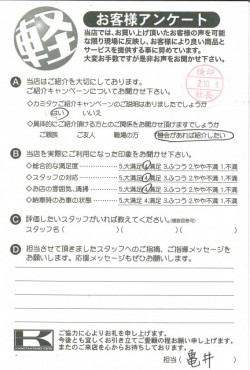 軽
お客様アンケート
当店では、お買い上げ頂いたお客様の声を可能
な限り現場に反映し、お客様により良い商品と
サービスを提供する事に努めています。
大変お手数ですが是非お声をお聞かせ下さい。
検印
社長
A 当店はご紹介を大切にしております。
ご紹介キャンペーンについてお聞かせ下さい。
◇カミタケご紹介キャンペーンのご説明はありましたでしょうか
はい いいえ
◇具体的にご紹介頂ける方とのご関係をお聞かせ頂けますでしょうか
ご親族 ご友人 職場の方 機会があれば紹介したい
B 当店を実際にご利用になった印象をお聞かせ下さい。
◇総合的な満足度 5.大満足 4.満足 3.ふつう 2.やや不満 1.不満
◇スタッフの対応 5.大満足 4.満足 3.ふつう 2.やや不満 1.不満
◇お店の雰囲気、清掃 5.大満足 4.満足 3.ふつう 2.やや不満 1.不満
◇納車時のお車の状態 5.大満足 4.満足 3.ふつう 2.やや不満 1.不満
C 評価したいスタッフがいれば教えてください。(複数回答可)
スタッフ名 ( ) ( ) ( )
D 担当させて頂きましたスタッフへのご指摘、ご指導メッセージを
お願いします。応援メッセージもぜひお願いします。
ご協力に心よりお礼を申し上げます。
今後とも宜しくお引き立てご愛顧の程お願い申し上げます。
またのご来店を心からお待ちしております。
担当 ( 亀井 )